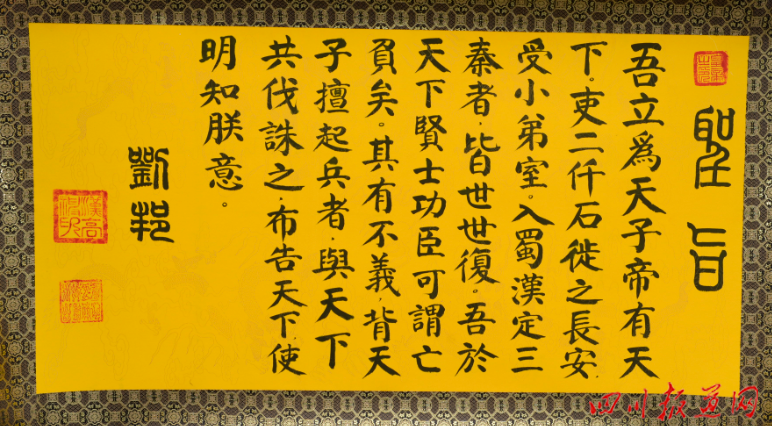 聖旨
吾立爲天子帝有天
下。吏二仟石徙之長安.
受小弟室。入蜀漢定三
秦者.皆世世復。吾於
天下賢士功臣可謂亡
負矣。其有不義.背天
子擅起兵者.與天下
共伐誅之.布告天下.使
明知朕意。
劉邦
四川报道网